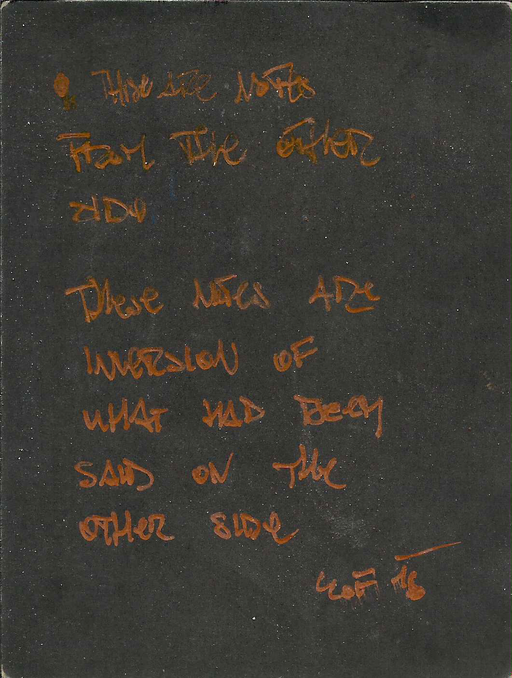 • These are notes
from the other
side
These notes are
inversion of
what had been
said on the
other side